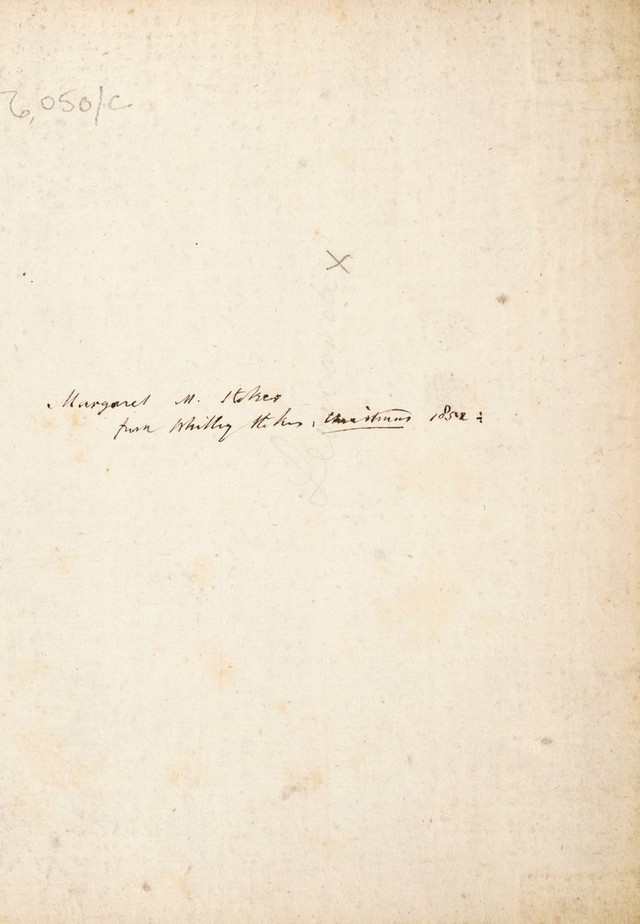 6,050/C
X
Margaret M. Stokes
from Whitley Stokes, Christmas